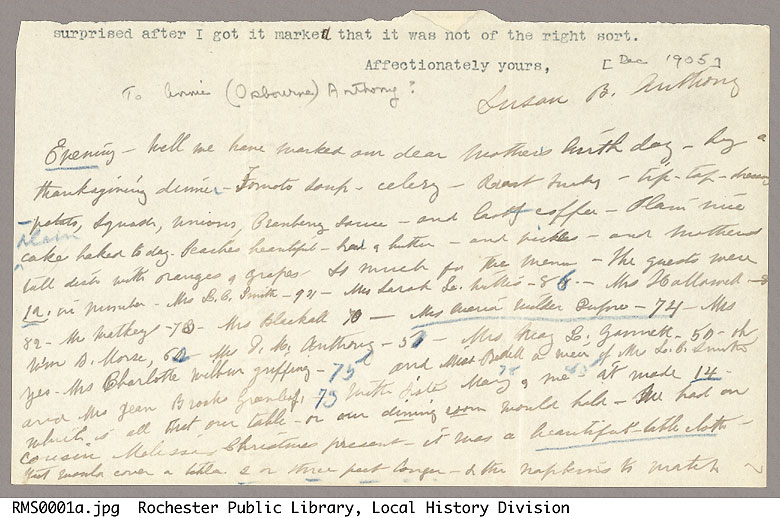 surprised after I got it marked that it was not of the right sort.
Affectionately yours,
[Dec 1905]
To Annie (Osbourne) Anthony?
Susan B. Anthony
Evening - Well we have marked our dear Mother's birth day - by a
thanksgiving dinner - Tomato soup - celery - Roast turkey - tip-top - dressing
- potato, squash, unions, Cranberry Sauce - and last coffee - Plain nice
plain
cake baked to day - Peaches beautiful - bread & butter - and pickles - and Mothers
tall dish with oranges & grapes So much for the menu - The guests were
12, in number - Mrs L. C. Smith - 92 - Mrs Sarah L. Willis - 86 - Mrs Hallowell - 8
82 - Mrs 78 - Mrs Blackall 70 - Mrs Maria Wilder - 74 - Mrs
Wm D. Morse, 62 - Mrs D. M. Anthony - 51 - Mrs Mary L. Gannett - 50 - oh
yes - Mrs Charlotte Wilbur Griffing - 75 and Miss a niece of Mrs L. C. Smith
and Mrs Jean Brooks Greenleaf, 73 With Sister Mary 78 & me 85 at made 14 -
which is all that our table - or our dining room would hold - We had on
cousin Melissie's Christmas present - it was a beautiful table cloth -
that would cover a table 2 or three feet longer - & the napkins to match
RMS0001a.jpg Rochester Public Library, Local History Division